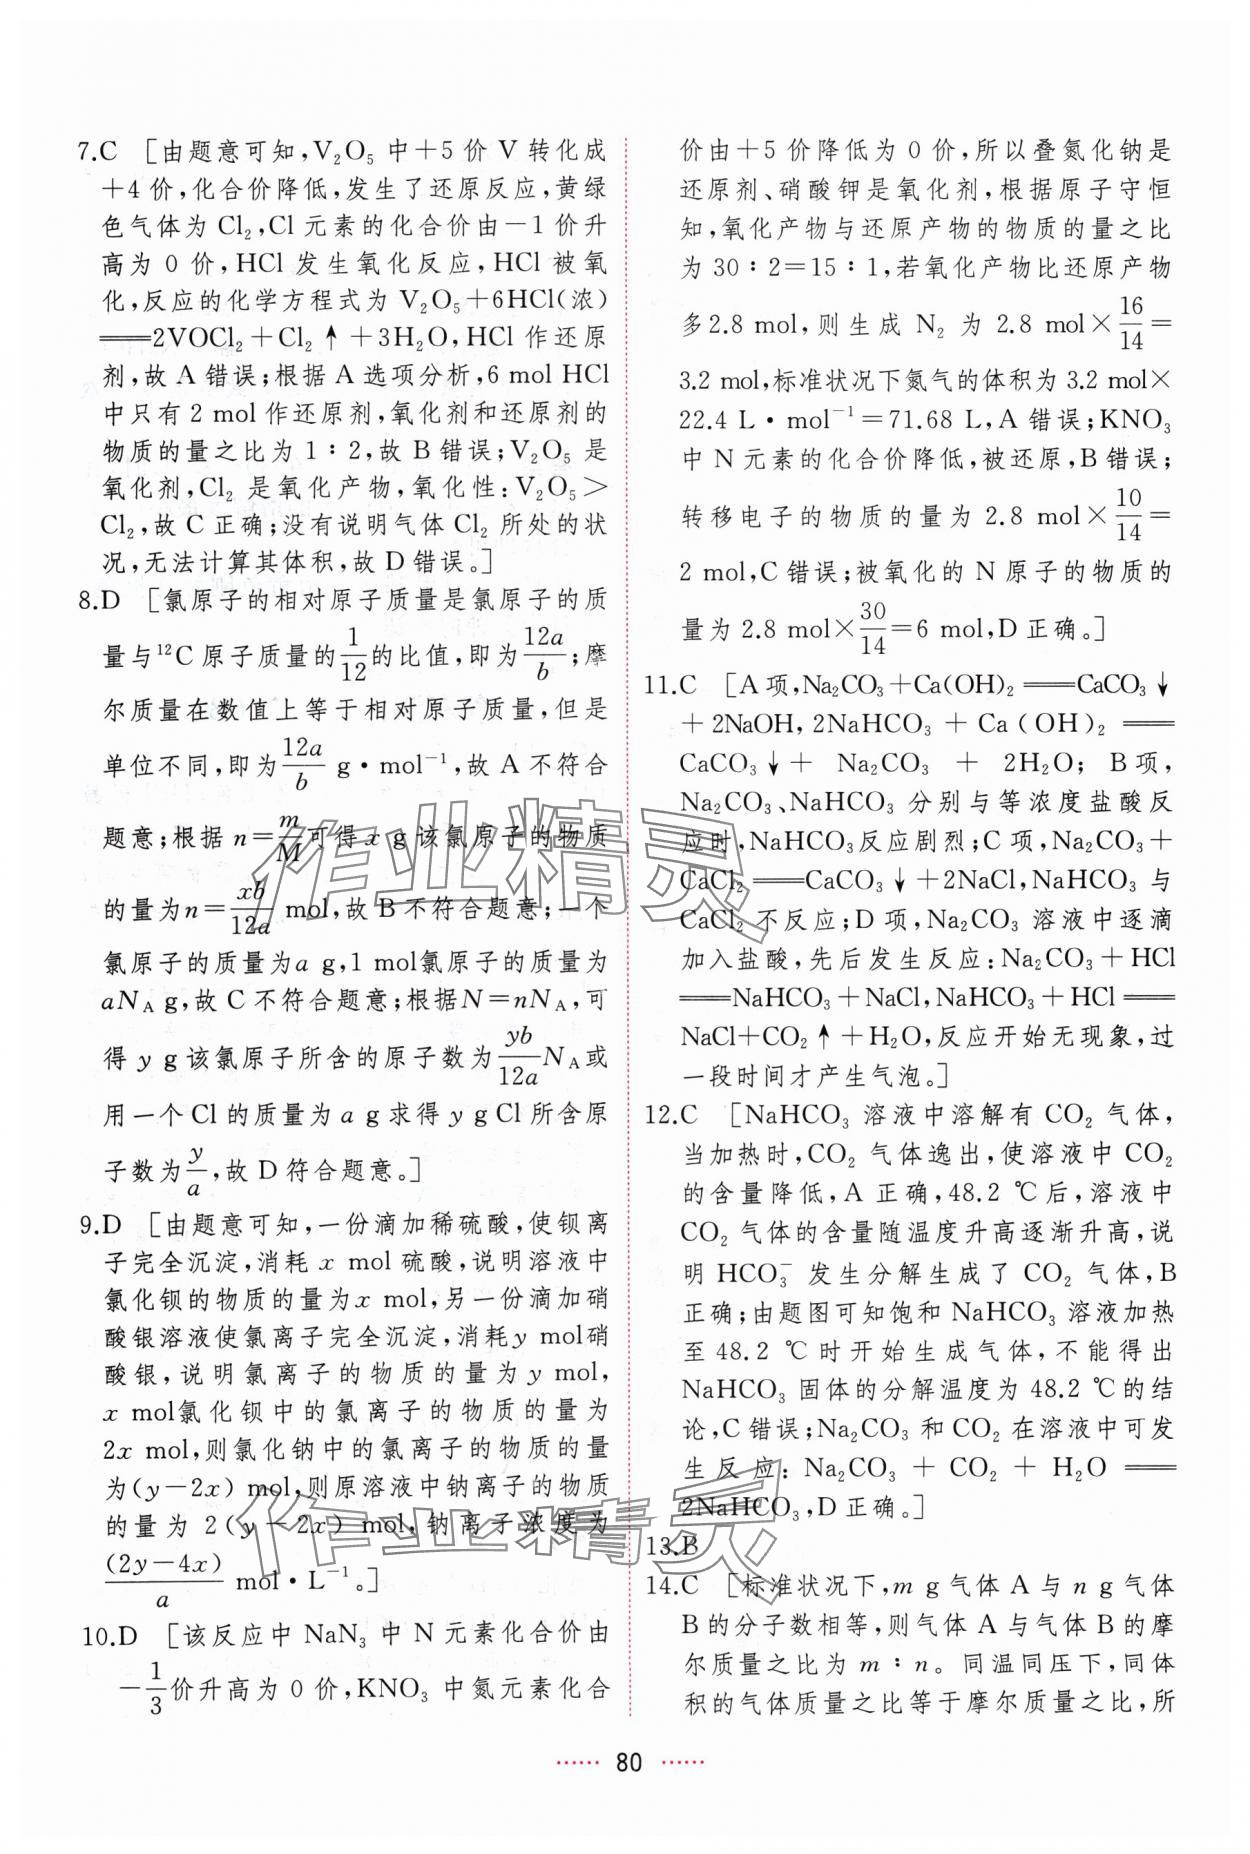 7.C [由题意可知,V₂O₅ 中+5 价 V 转化成
+4 价,化合价降低,发生了还原反应,黄绿
色气体为 Cl₂,Cl 元素的化合价由-1 价升
高为 0 价,HCl 发生氧化反应,HCl 被氧
化,反应的化学方程式为 V₂O₅+6HCl(浓)
══2VOCl₂+Cl₂↑+3H₂O,HCl 作还原
剂,故 A 错误;根据 A 选项分析,6 mol HCl
中只有 2 mol 作还原剂,氧化剂和还原剂的
物质的量之比为 1∶2,故 B 错误;V₂O₅ 是
氧化剂,Cl₂ 是氧化产物,氧化性:V₂O₅>
Cl₂,故 C 正确;没有说明气体 Cl₂ 所处的状
况,无法计算其体积,故 D 错误。]
8.D [氯原子的相对原子质量是氯原子的质
量与¹²C 原子质量的1/12的比值,即为12a/b;摩
尔质量在数值上等于相对原子质量,但是
单位不同,即为12a/b g·mol⁻¹,故 A 不符合
题意;根据 n=m/M可得 x g 该氯原子的物质
的量为n=xb/12a mol,故 B 不符合题意;一个
氯原子的质量为a g,1 mol氯原子的质量为
aN_A g,故 C 不符合题意;根据N=nN_A,可
得 y g 该氯原子所含的原子数为yb/12a N_A或
用一个 Cl 的质量为 a g 求得 y g Cl 所含原
子数为y/a,故 D 符合题意。]
9.D [由题意可知,一份滴加稀硫酸,使钡离
子完全沉淀,消耗 x mol 硫酸,说明溶液中
氯化钡的物质的量为x mol,另一份滴加硝
酸银溶液使氯离子完全沉淀,消耗y mol硝
酸银,说明氯离子的物质的量为 y mol,
x mol氯化钡中的氯离子的物质的量为
2x mol,则氯化钠中的氯离子的物质的量
为(y-2x) mol,则原溶液中钠离子的物质
的量为 2(y-2x) mol,钠离子浓度为
(2y-4x)/a mol·L⁻¹。]
10.D [该反应中 NaN₃ 中 N 元素化合价由
-1/3价升高为 0 价,KNO₃ 中氮元素化合
价由+5 价降低为 0 价,所以叠氮化钠是
还原剂、硝酸钾是氧化剂,根据原子守恒
知,氧化产物与还原产物的物质的量之比
为 30∶2=15∶1,若氧化产物比还原产物
多2.8 mol,则生成 N₂ 为 2.8 mol×16/14=
3.2 mol,标准状况下氮气的体积为 3.2 mol×
22.4 L·mol⁻¹=71.68 L,A 错误;KNO₃
中 N 元素的化合价降低,被还原,B 错误;
转移电子的物质的量为 2.8 mol×10/14=
2 mol,C 错误;被氧化的 N 原子的物质的
量为 2.8 mol×30/14=6 mol,D 正确。]
11.C [A 项,Na₂CO₃+Ca(OH)₂══CaCO₃↓
+2NaOH,2NaHCO₃+Ca(OH)₂══
CaCO₃↓+Na₂CO₃+2H₂O;B 项,
Na₂CO₃、NaHCO₃ 分别与等浓度盐酸反
应时,NaHCO₃反应剧烈;C 项,Na₂CO₃+
CaCl₂══CaCO₃↓+2NaCl,NaHCO₃ 与
CaCl₂ 不反应;D 项,Na₂CO₃ 溶液中逐滴
加入盐酸,先后发生反应:Na₂CO₃+HCl
══NaHCO₃+NaCl,NaHCO₃+HCl══
NaCl+CO₂↑+H₂O,反应开始无现象,过
一段时间才产生气泡。]
12.C [NaHCO₃ 溶液中溶解有 CO₂ 气体,
当加热时,CO₂ 气体逸出,使溶液中 CO₂
的含量降低,A 正确,48.2 ℃后,溶液中
CO₂ 气体的含量随温度升高逐渐升高,说
明 HCO₃⁻ 发生分解生成了 CO₂ 气体,B
正确;由题图可知饱和 NaHCO₃ 溶液加热
至 48.2 ℃时开始生成气体,不能得出
NaHCO₃ 固体的分解温度为 48.2 ℃的结
论,C 错误;Na₂CO₃ 和 CO₂ 在溶液中可发
生反应:Na₂CO₃+CO₂+H₂O══
2NaHCO₃,D 正确。]
13.B
14.C [标准状况下,m g 气体 A 与 n g 气体
B 的分子数相等,则气体 A 与气体 B 的摩
尔质量之比为 m∶n。同温同压下,同体
积的气体质量之比等于摩尔质量之比,所
80
作业精灵
作业精灵